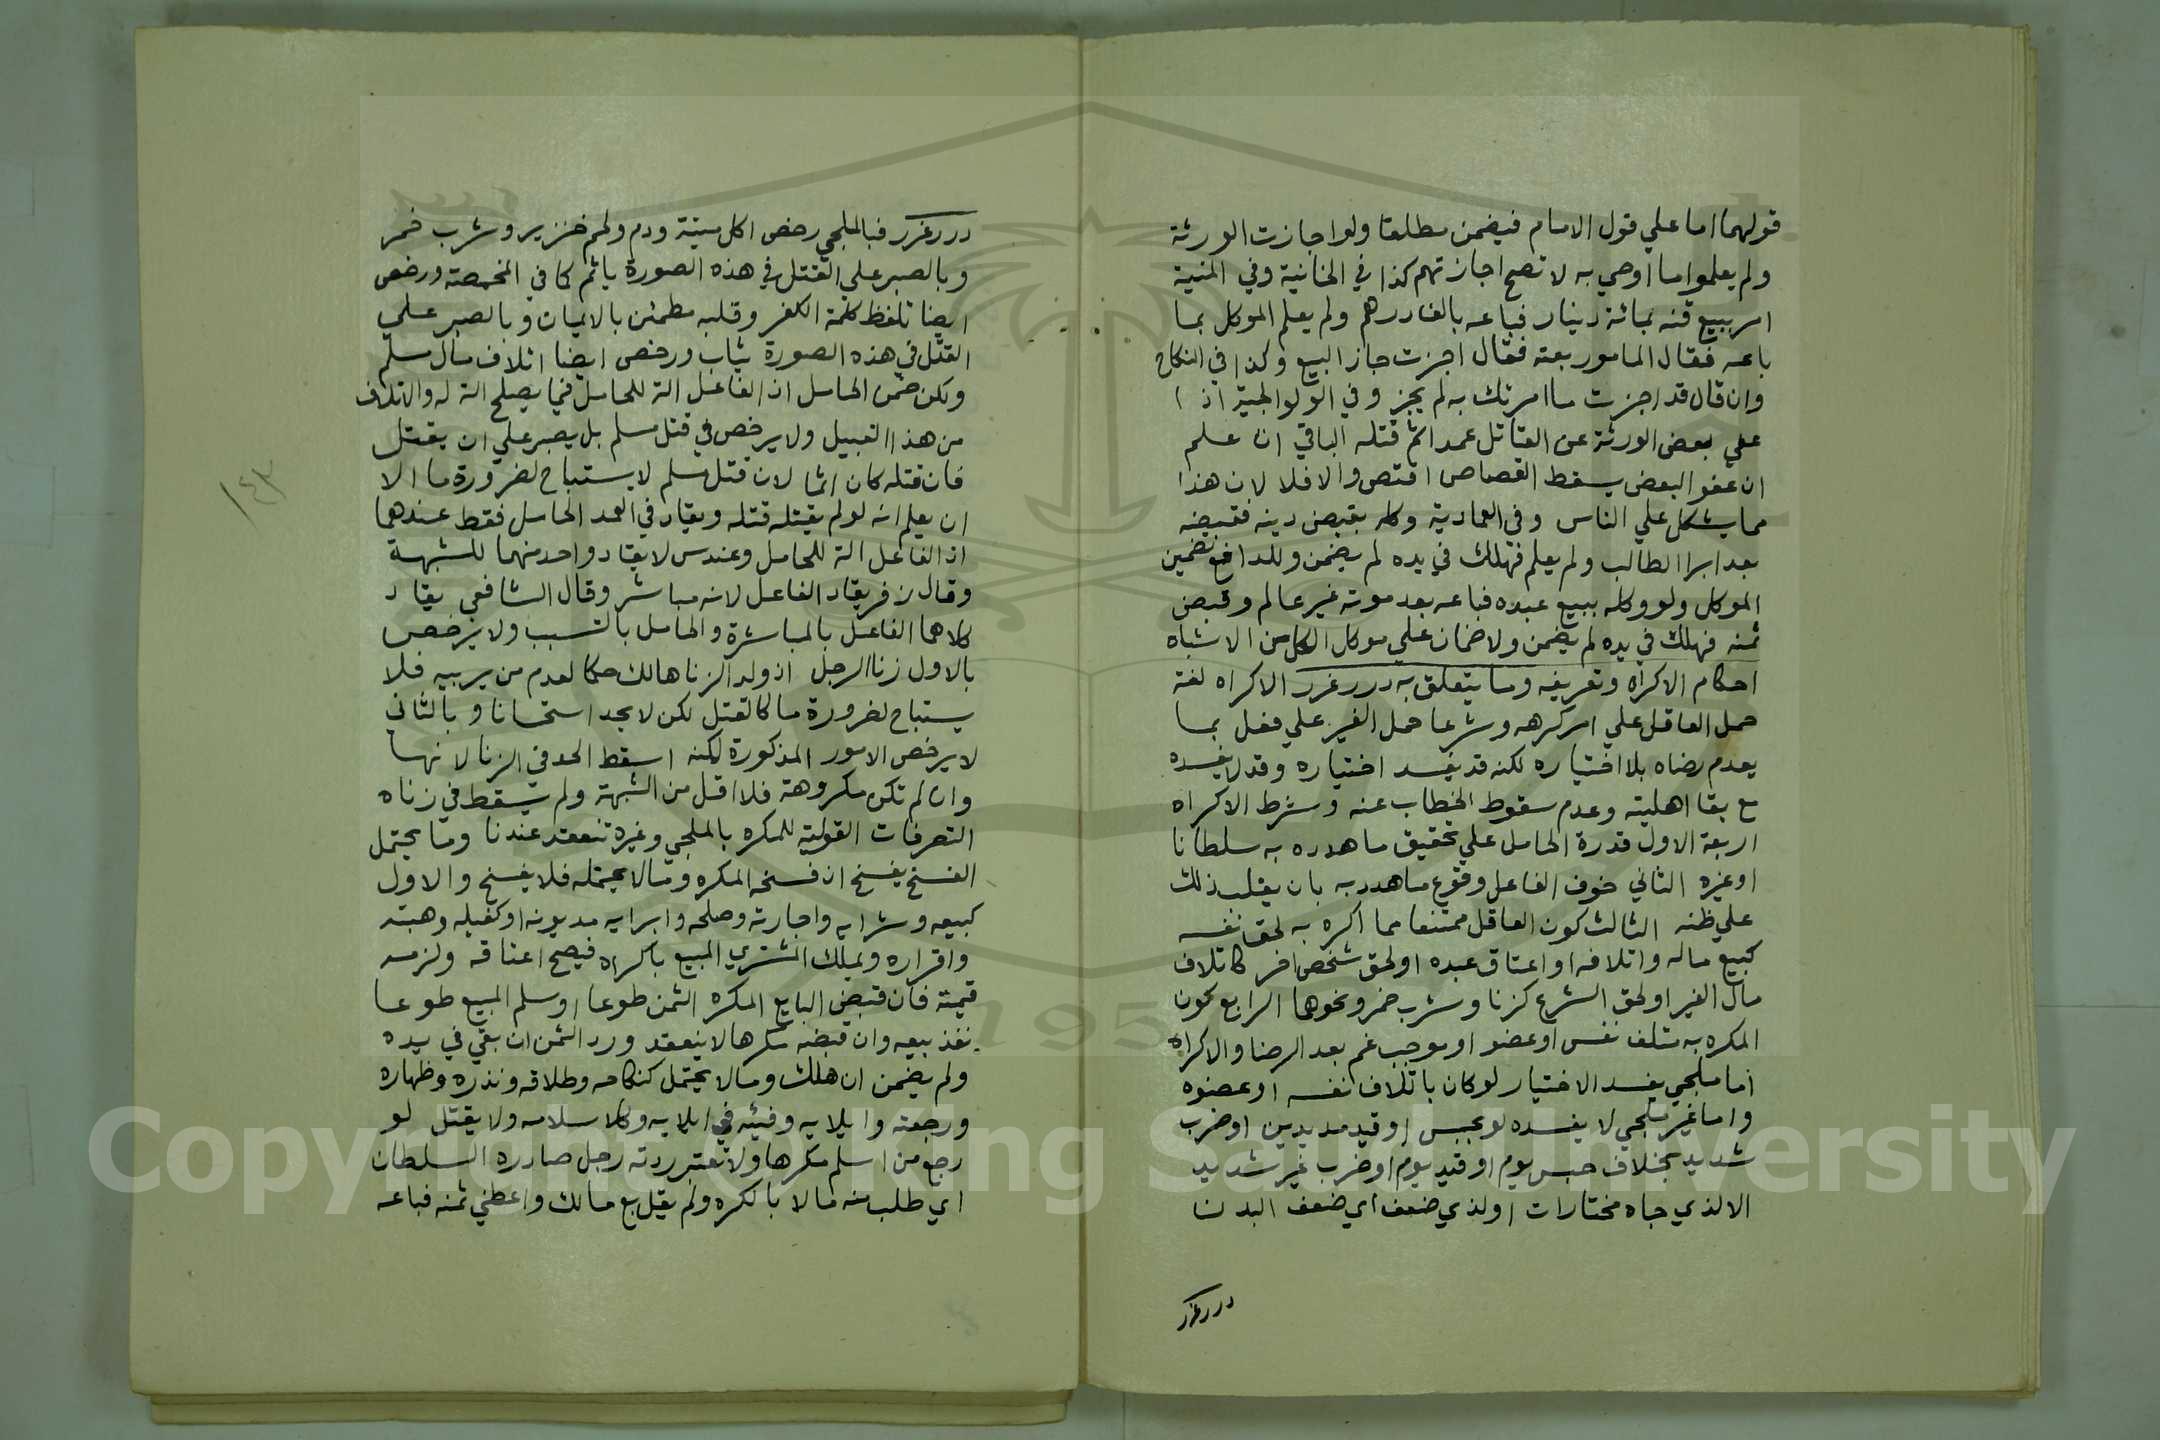 قولهما اما علي قول الامام فيضمن مطلقا ولو اجازت الورثة
ولم يعلموا ما اوصي به لا تصح اجازتهم كذا في الخانية وفي المنية
امر ببيع قنه بمائة دينار فباعه بالف درهم ولم يعلم الموكل بما
باعه فقال المامور بعته فقال اجزت جاز البيع وكذا في النكاح
وان قال قد اجزت ما امرتك به لم يجز وفي الولوالجية اذا
علي بعض الورثة عن القاتل عمدا ثم قتله الباقي ان علم
ان عفو البعض يسقط القصاص اقتص والا فلا لان هذا
مما يشكل علي الناس وفي العمادية وكله بقبض دينه فقبضه
بعد ابرا الطالب ولم يعلم فهلك في يده لم يضمن وللدافع تضمين
الموكل ولو وكله ببيع عبده فباعه بعد موته غير عالم وقبض
ثمنه فهلك في يده لم يضمن ولا ضمان علي موكل الكل من الاشباه
احكام الاكراه وتعريفه وما يتعلق به درر غرر الاكراه لغة
حمل العاقل علي امر كرهه وشرعا حمل الغير علي فعل بما
يعدم رضاه بلا اختياره لكنه قد يفسد اختياره وقد لا يفسده
مع بقا اهليته وعدم سقوط الخطاب عنه وشرط الاكراه
اربعة الاول قدرة الحامل علي تحقيق ما هدده به سلطانا
او غيره الثاني خوف الفاعل وقوع ما هدد به بان يغلب ذلك
علي ظنه الثالث كون العاقل ممتنعا مما اكره به لحق نفسه
كبيع ماله واتلافه او اعتاق عبده او لحق شخص اخر كاتلاف
مال الغير او لحق الشرع كزنا وشرب خمر ونحوها الرابع كون
المكره به متلف نفس او عضو او موجب غم بعد الرضا والاكراه
اما ملجي يفسد الاختيار لو كان باتلاف نفسه او عضوه
واما غير ملجي لا يفسده لو بحبس او قيد مديدين او ضرب
شديد بخلاف حبس يوم او قيد يوم او ضرب غير شديد
الا لذي جاه مختارات او لذي ضعف اي ضعف البدن
درر غرر
درر غرر فبالملجي رخص اكل ميتة ودم ولحم خنزير وشرب خمر
وبالصبر علي القتل في هذه الصورة ياثم كما في المخمصة ورخص
ايضا تلفظ كلمة الكفر وقلبه مطمئن بالايمان وبالصبر علي
القتل في هذه الصورة يثاب ورخص ايضا اتلاف مال مسلم
ولكن ضمن الحامل اذ الفاعل الة للحامل فيما يصلح الة له والاتلاف
من هذا القبيل ولا يرخص في قتل مسلم بل يصبر علي ان يقتل
فان قتله كان اثما لان قتل مسلم لا يستباح لضرورة ما الا
ان يعلم انه لو لم يقتله قتله ويقاد في العمد الحامل فقط عندهما
اذ الفاعل الة للحامل وعند س لا يقاد واحد منهما للشبهة
وقال زفر يقاد الفاعل لانه مباشر وقال الشافعي يقاد
كلاهما الفاعل بالمباشرة والحامل بالتسبب ولا يرخص
بالاول زنا الرجل اذ ولد الزنا هالك حكما لعدم من يربيه فلا
يستباح لضرورة ما كالقتل لكن لا يحد استحسانا وبالثاني
لا يرخص الامور المذكورة لكنه اسقط الحد في الزنا لانها
وان لم تكن مكروهة فلا اقل من الشبهة ولم يسقط في زناه
التصرفات القولية للمكره بالملجي وغيره تنعقد عندنا وما يحتمل
الفسخ يفسخ ان فسخه المكره وما لا يحتمله فلا يفسخ والاول
كبيعه وشرايه واجارته وصلحه وابرايه مديونه او كفيله وهبته
واقراره ويملك المشتري المبيع باكراه فيصح اعتاقه ولزمه
قيمته فان قبض البايع المكره الثمن طوعا او سلم المبيع طوعا
نفذ بيعه وان قبضه مكرها لا ينعقد ورد الثمن ان بقي في يده
ولم يضمن ان هلك وما لا يحتمل كنكاحه وطلاقه ونذره وظهاره
ورجعته وايلايه وفيئه في ايلايه وكاسلامه ولا يقتل لو
رجع من اسلم مكرها ولا تعتبر ردته رجل صادره السلطان
اي طلب منه مالا بالكره ولم يقل بع مالك واعطني ثمنه فباعه
١٤٣
Copyright © King Saud University
195